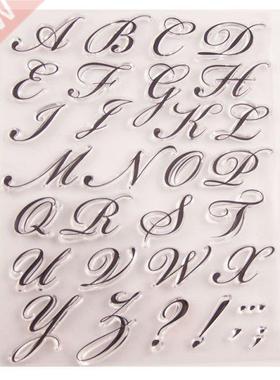 A B C D
E F G H
I J K L
M N O P
Q R S T
U V W X
Y Z ? ! ... ;